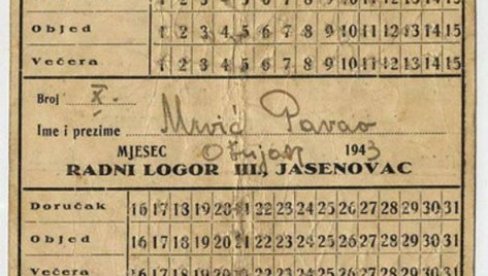 1 2 3 4 5 6 7 8 9 10 11 12 13 14 15
Objed 1 2 3 4 5 6 7 8 9 10 11 12 13 14 15
Večera 1 2 3 4 5 6 7 8 9 10 11 12 13 14 15
Broj X.
Ime i prezime Mrvić Pavao
MJESEC Ožujak 1943
RADNI LOGOR III, JASENOVAC
Doručak 16 17 18 19 20 21 22 23 24 25 26 27 28 29 30 31
Objed 16 17 18 19 20 21 22 23 24 25 26 27 28 29 30 31
Večera 16 17 18 19 20 21 22 23 24 25 26 27 28 29 30 31